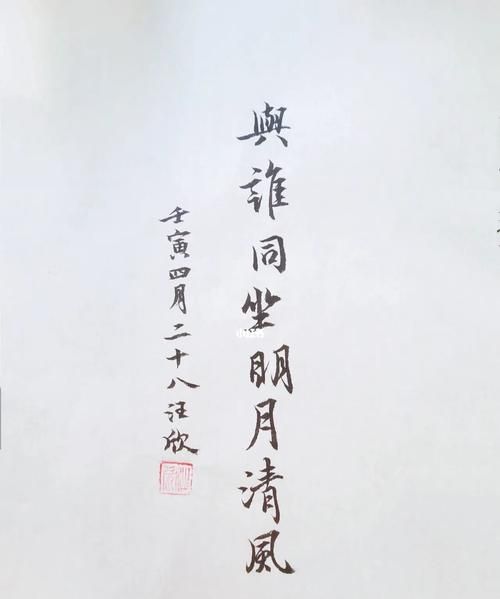 與誰同坐明月清風
壬寅四月二十八汪欣